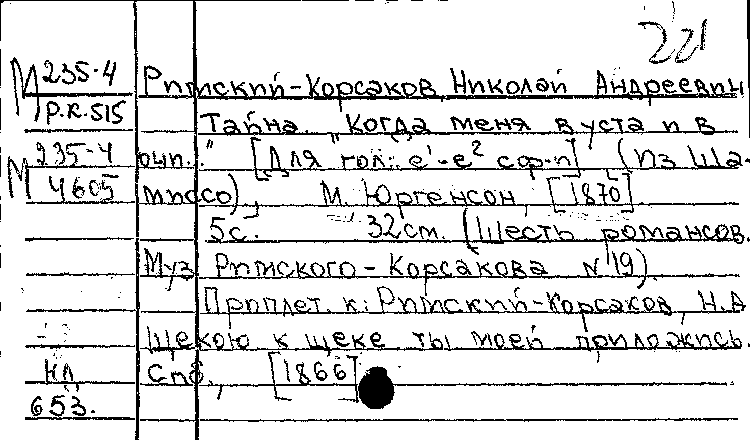 221
М 235-4 Римский-Корсаков, Николай Андреевич
Р.К.515 Тайна. "Когда меня в уста и в
М 235-4 очи.." [Для гол.: e'-e² сопр-п] (Из Ша-
4605 миссо), М. Юргенсон, [1870]
5с. 32см. (Шесть романсов.
Муз. Римского-Корсакова N 19).
Приплет. к: Римский-Корсаков, Н.А
Щекою к щеке ты моей приложись.
НЛ Спб., [1866]
653.